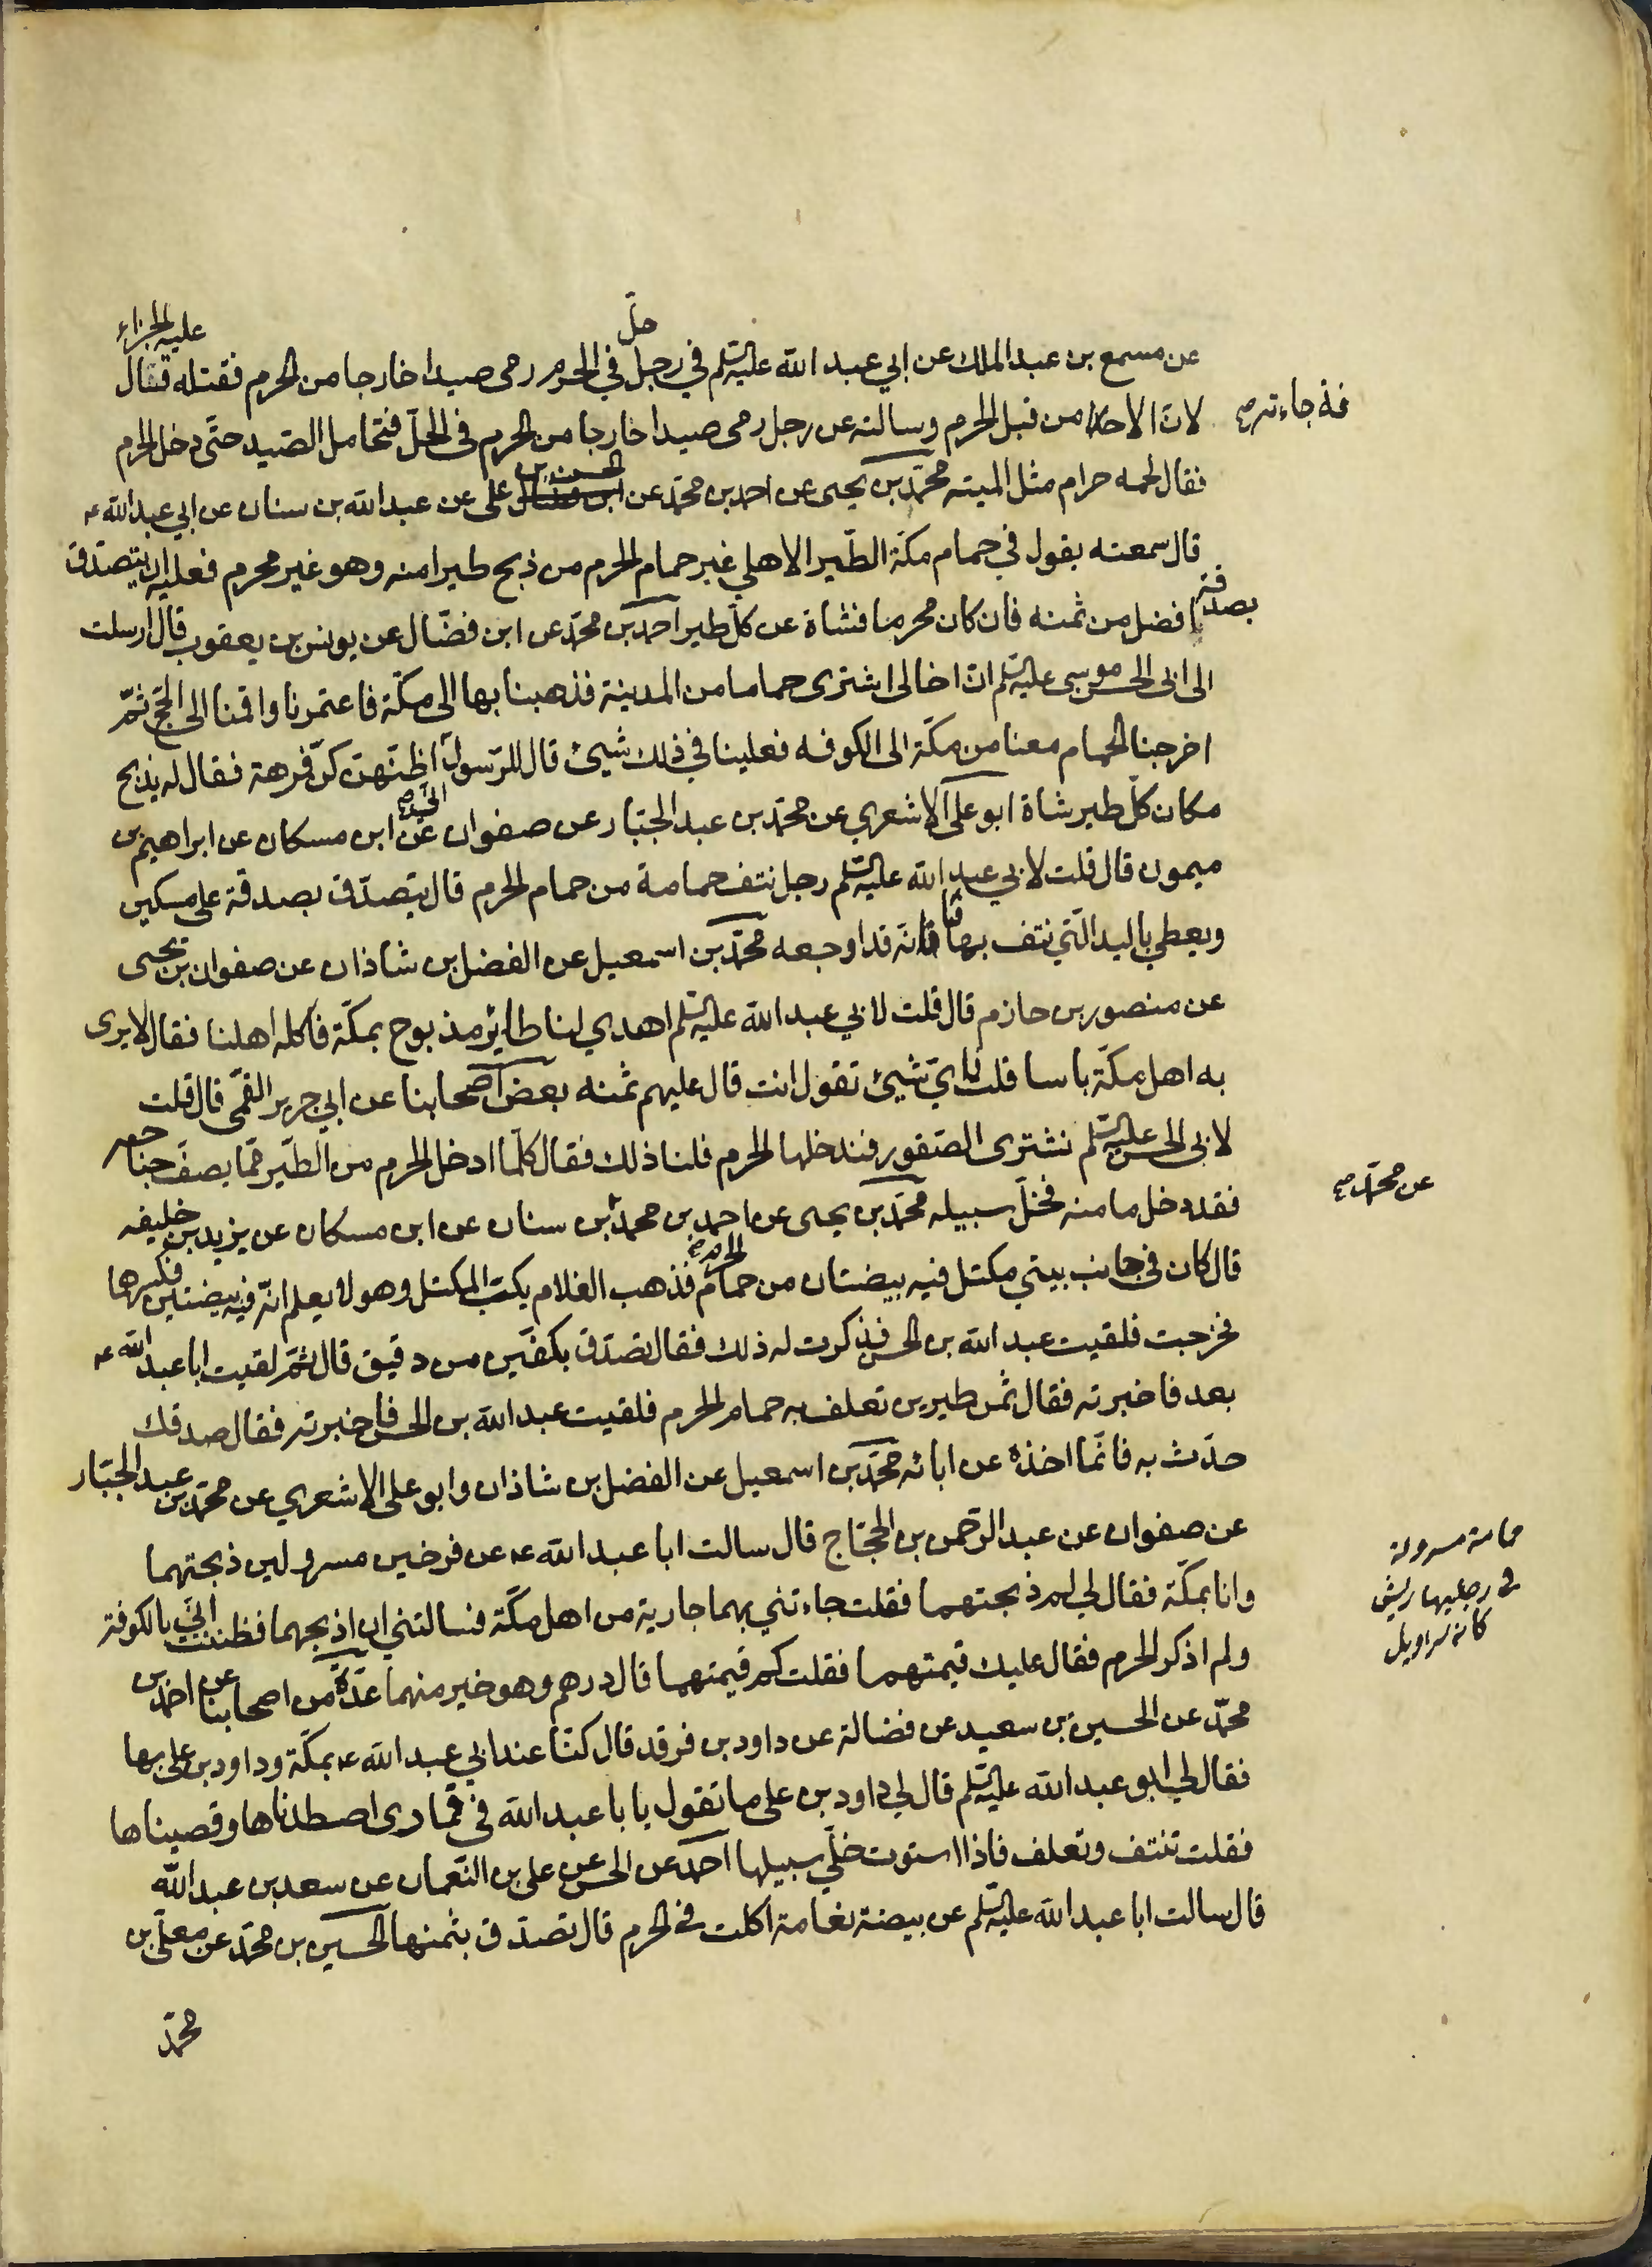 عن مسمع بن عبد الملك عن ابي عبد الله عليه السلم في رجل حلّ في الحرم رمى صيدا خارجا من الحرم فقتله فقال عليه الجزاء
لان الافة جاءته من قبل الحرم وسالته عن رجل رمى صيدا خارجا من الحرم في الحلّ فتحامل الصّيد حتّى دخل الحرم
فقال لحمه حرام مثل الميته محمّد بن يحيى عن احمد بن محمّد عن الحسن بن علي عن عبد الله بن سنان عن ابي عبد الله ع
قال سمعته يقول في حمام مكّة الطّير الاهلي غير حمام الحرم من ذبح طيرا منه وهو غير محرم فعليه ان يتصدّق
بصدقة افضل من ثمنه فان كان محرما فشاة عن كلّ طير احمد بن محمّد عن ابن فضّال عن يونس بن يعقوب قال ارسلت
الى ابى الحسن موسى عليه السلم انّ اخا لى اشترى حماما من المدينة فذهبنا بها الى مكّة فاعتمرنا واقمنا الى الحّج ثمّ
اخرجنا الحمام معنا من مكّة الى الكوفه فعلينا في ذلك شيئ قال للرّسول اظنّهنّ كنّ فرهة فقال له يذبح
مكان كلّ طير شاة ابو على الاشعري عن محمّد بن عبد الجبّار عن صفوان عن ابن مسكان عن ابراهيم بن
ميمون قال قلت لابي عبد الله عليه السلم رجل نتف حمامة من حمام الحرم قال يتصدّق بصدقة على مسكين
ويعطي باليد الّتي نتف بها فانّه قد اوجعه محمّد بن اسمعيل عن الفضل بن شاذان عن صفوان بن يحيى
عن منصور بن حازم قال قلت لابي عبد الله عليه السلم اهدي لنا طائر مذبوح بمكّة فاكله اهلنا فقال لا يرى
به اهل مكّة باسا قلت فايّ شيئ تقول انت قال عليهم ثمنه بعض اصحابنا عن ابي جرير القمّى قال قلت
لابى الحسن عليه السلم نشترى الصّقور فندخلها الحرم فلنا ذلك فقال كلّما ادخل الحرم من الطّير ممّا يصفّ جناحه
فقد دخل مامنه فخلّ سبيله محمّد بن يحيى عن احمد بن محمّد بن سنان عن ابن مسكان عن يزيد بن خليفه
عن محمّد صح
قال كان في جانب بيتي مكتل فيه بيضتان من حمام الحرم فذهب الغلام يكبّ المكتل وهو لا يعلم انّ فيه بيضتين فكسرهما
فخرجت فلقيت عبد الله بن الحسن فذكرت له ذلك فقال تصدّق بكفّين من دقيق قال ثمّ لقيت ابا عبد الله ع
بعد فاخبرته فقال ثمن طيرين تعلف به حمام الحرم فلقيت عبد الله بن الحسن فاخبرته فقال صدقك
حدّث به فانّما اخذه عن ابائه محمّد بن اسمعيل عن الفضل بن شاذان وابو على الاشعري عن محمّد بن عبد الجبّار
عن صفوان عن عبد الرّحمن بن الحجّاج قال سالت ابا عبد الله ع عن فرخين مسرولين ذبحتهما
حمامة مسرولة
في رجليها ريش
كانه سراويل
وانا بمكّة فقال لي لم ذبحتهما فقلت جاءتني بهما جارية من اهل مكّة فسالتني ان اذبحهما فظننت انّي بالكوفة
ولم اذكر الحرم فقال عليك قيمتهما فقلت كم قيمتهما قال درهم وهو خير منهما عدّة من اصحابنا عن احمد بن
محمّد عن الحسين بن سعيد عن فضالة عن داود بن فرقد قال كنّا عند ابي عبد الله ع بمكّة وداود بن على بها
فقال لي ابو عبد الله عليه السلم قال لي داود بن على ما تقول يا با عبد الله في قمّارى اصطدناها وقصيناها
فقلت تنتف وتعلف فاذا استوت خلّي سبيلها احمد عن الحسن عن على بن النّعمان عن سعد بن عبد الله
قال سالت ابا عبد الله عليه السلم عن بيضة نعامة اكلت في الحرم قال تصدّق بثمنها الحسين بن محمّد عن معلّى بن
محمّد